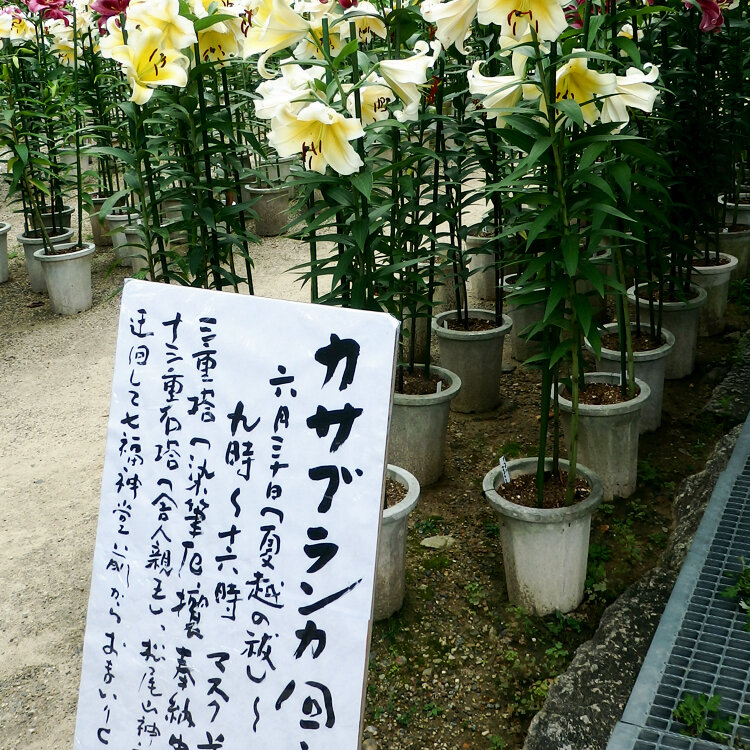 カサブランカ回
六月三十日「夏越の祓」〜
九時〜十六時 マスク
三重塔「染筆厄攘奉納
十三重石塔「舎人親王」、松尾山神
迂回して七福神堂前からおまいり